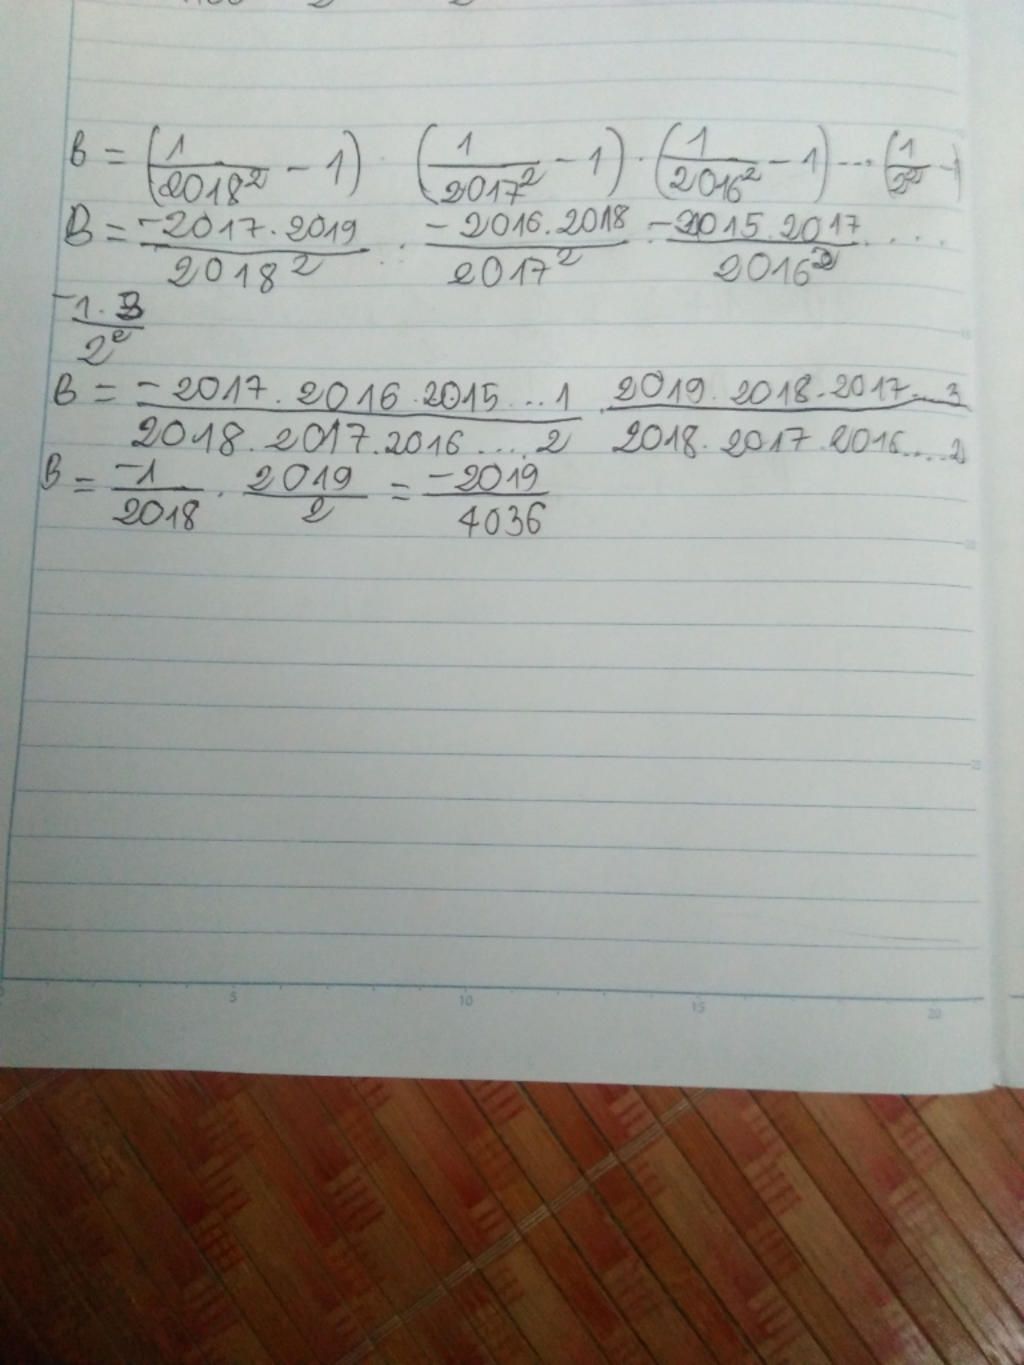 B = (1/2018² - 1) · (1/2017² - 1) · (1/2016² - 1) ... (1/2² - 1)
B = -2017.2019/2018² · -2016.2018/2017² · -2015.2017/2016² ....
-1.3/2²
B = -2017.2016.2015...1/2018.2017.2016....2 · 2019.2018.2017...3/2018.2017.2016....2
B = -1/2018 · 2019/2 = -2019/4036
5 10 15 20